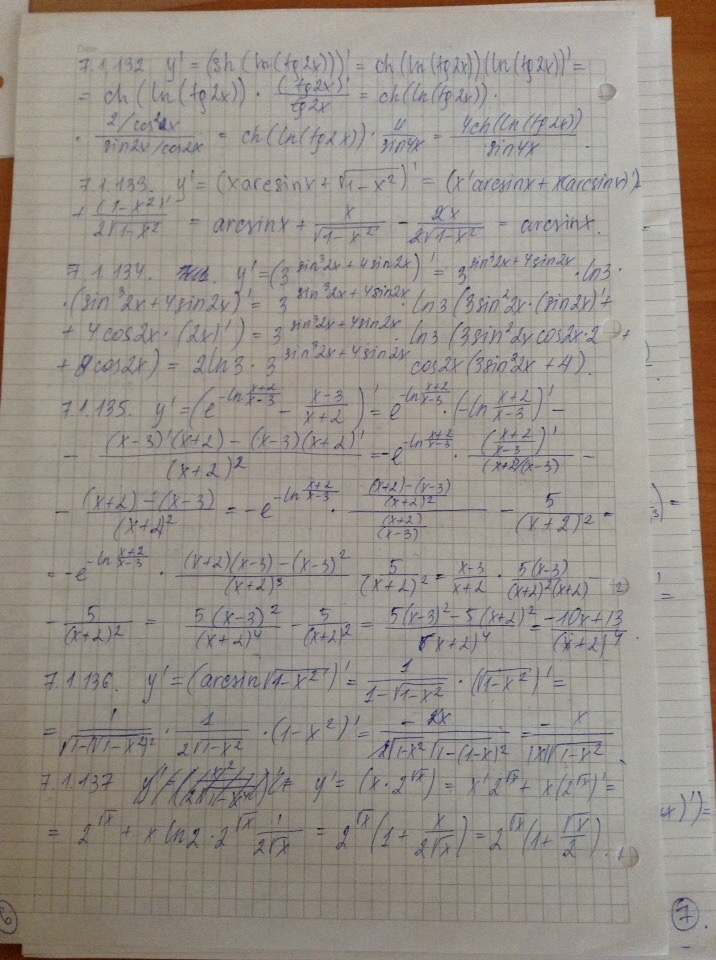 7.1.132 y' = (sh(ln(tg2x)))' = ch(ln(tg2x))(ln(tg2x))' =
= ch(ln(tg2x)) · (tg2x)'/tg2x = ch(ln(tg2x)) ·
· (2/cos²2x)/(sin2x/cos2x) = ch(ln(tg2x)) · 4/sin4x = 4ch(ln(tg2x))/sin4x.
7.1.133. y' = (xarcsinx + √(1-x²))' = (x'arcsinx + x(arcsinx)') +
+ (1-x²)'/(2√(1-x²)) = arcsinx + x/√(1-x²) - 2x/(2√(1-x²)) = arcsinx.
7.1.134. y' = (3^(sin³2x+4sin2x))' = 3^(sin³2x+4sin2x) · ln3 ·
· (sin³2x+4sin2x)' = 3^(sin³2x+4sin2x) · ln3 (3sin²2x·(sin2x)' +
+ 4cos2x·(2x)') = 3^(sin³2x+4sin2x) · ln3 (3sin²2xcos2x·2 +
+ 8cos2x) = 2ln3 · 3^(sin³2x+4sin2x) cos2x(3sin²2x+4).
7.1.135 y' = (e^(-ln((x+2)/(x-3))) - (x-3)/(x+2))' = e^(-ln((x+2)/(x-3))) · (-ln((x+2)/(x-3)))' -
- ((x-3)'(x+2) - (x-3)(x+2)')/(x+2)² = -e^(-ln((x+2)/(x-3))) · ((x+2)/(x-3))'/((x+2)/(x-3)) -
- ((x+2) - (x-3))/(x+2)² = -e^(-ln((x+2)/(x-3))) · (((x+2)-(x-3))/(x+2)²)/((x+2)/(x-3)) - 5/(x+2)² =
= -e^(-ln((x+2)/(x-3))) · ((x+2)(x-3) - (x-3)²)/(x+2)³ - 5/(x+2)² = (x-3)/(x+2) · 5(x-3)/((x+2)²(x+2)) -
- 5/(x+2)² = 5(x-3)²/(x+2)⁴ - 5/(x+2)² = (5(x-3)² - 5(x+2)²)/(x+2)⁴ = (-10x+13)/(x+2)⁴.
7.1.136. y' = (arcsin√(1-x²))' = 1/(1-√(1-x²)) · (√(1-x²))' =
= 1/√(1-(√(1-x²))²) · 1/(2√(1-x²)) · (1-x²)' = -2x/(2√(1-x²)√(1-(1-x)²)) = -x/(|x|√(1-x²)).
7.1.137 y' = (x·2^√x) = x'2^√x + x(2^√x)' =
= 2^√x + x ln2 · 2^√x 1/(2√x) = 2^√x(1 + x/(2√x)) = 2^√x(1 + √x/2).
7